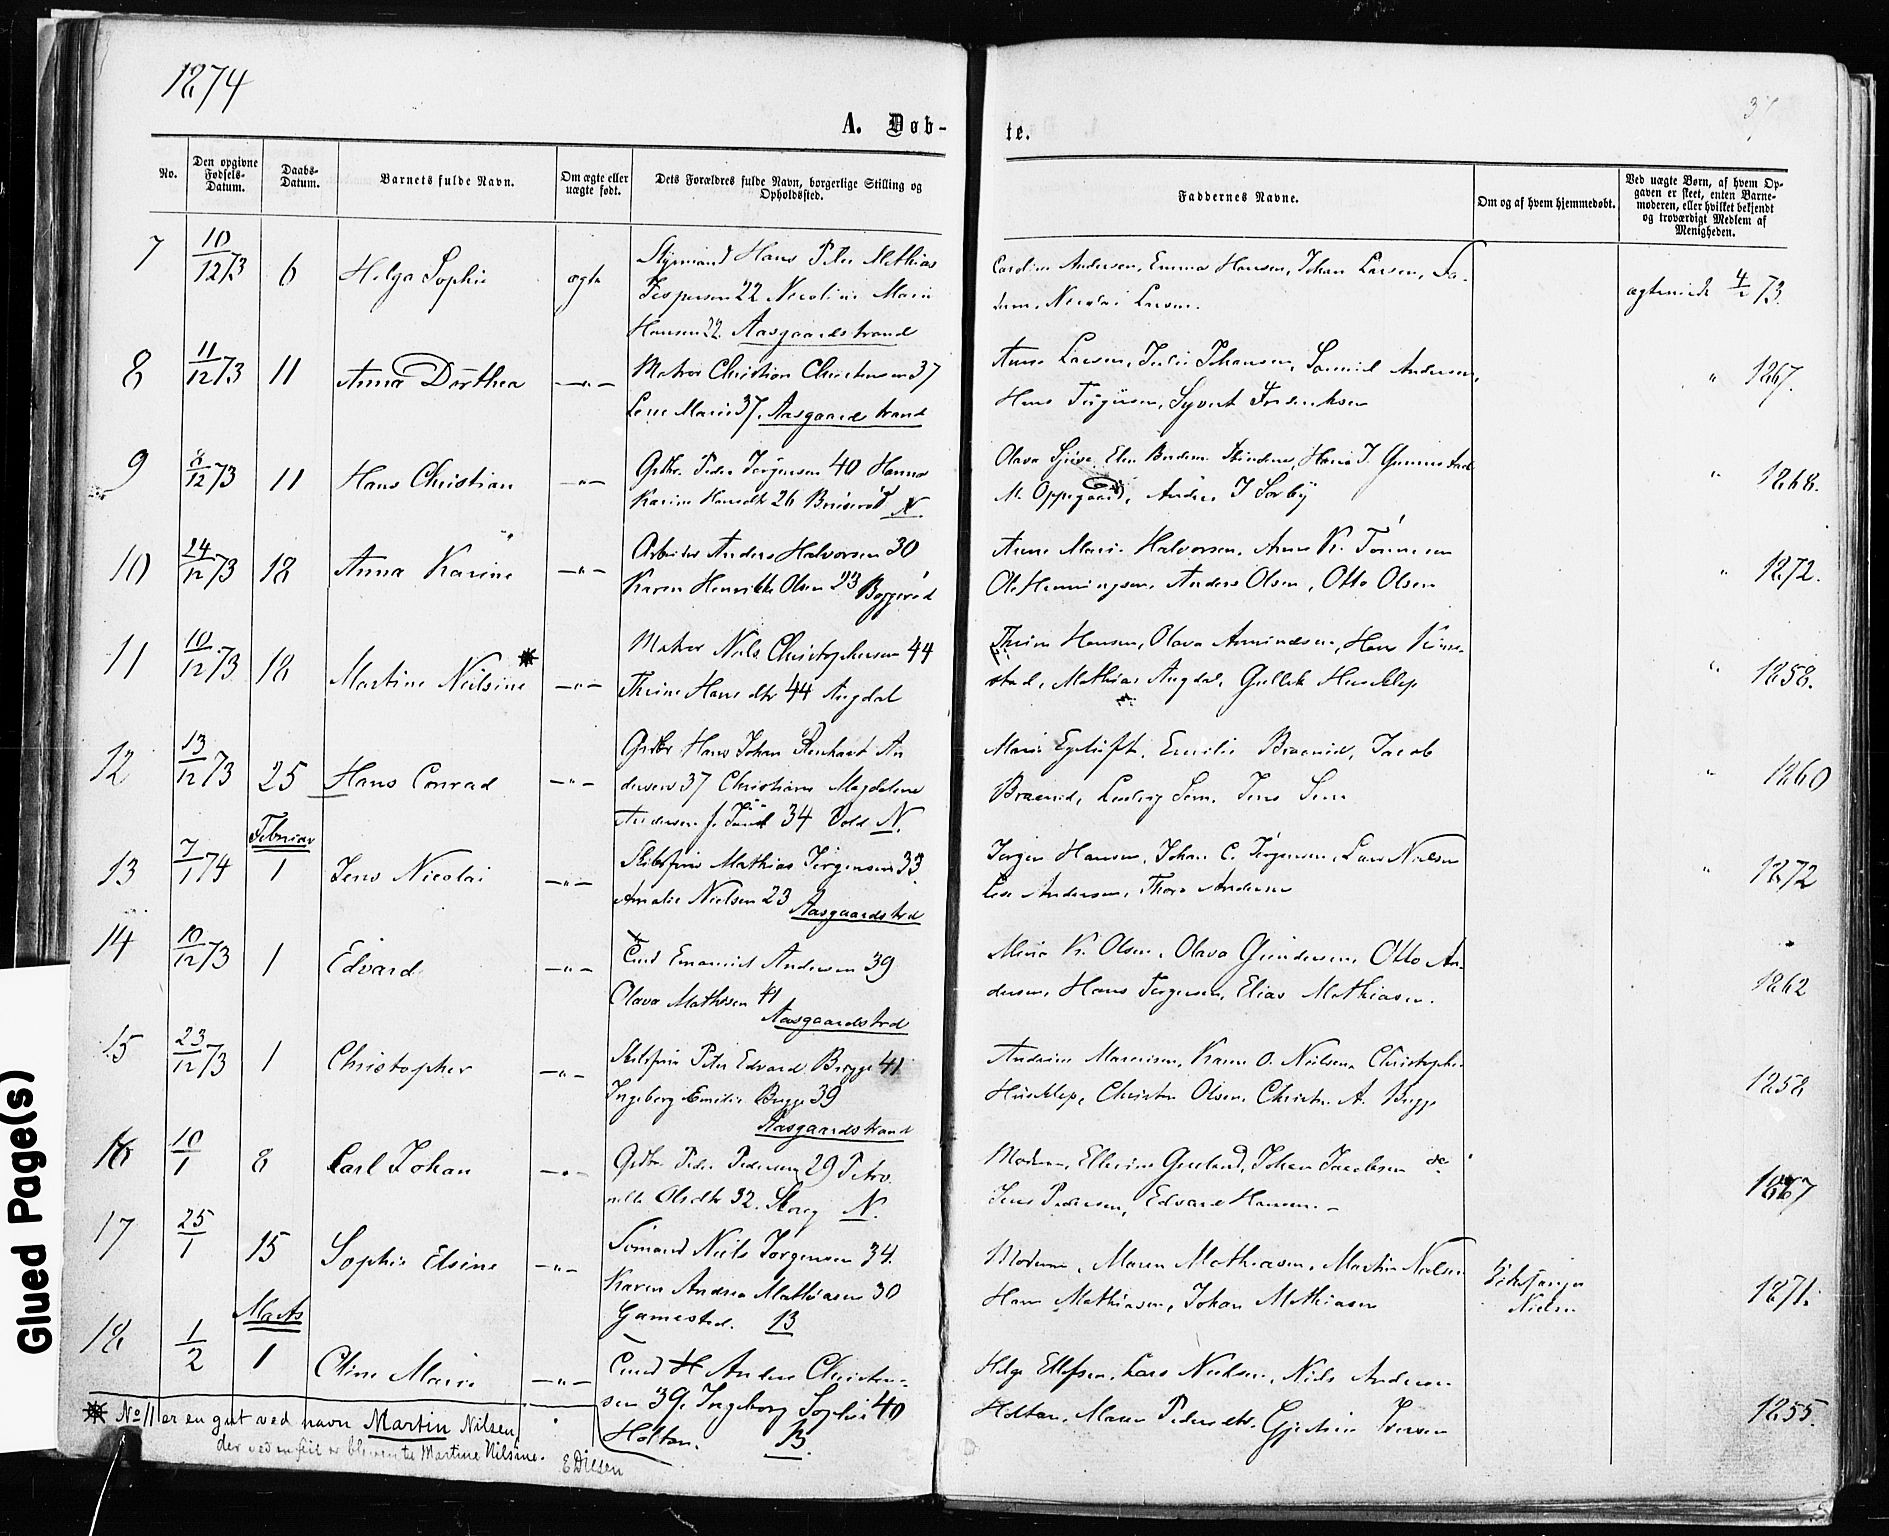 1874
37
A. Døb-
te.
No.
Den opgivne
Fødsels-
Datum.
Daabs-
Datum.
Barnets fulde Navn.
Om ægte eller
uægte født.
Dets Forældres fulde Navn, borgerlige Stilling og
Opholdssted.
Faddernes Navne.
Om og af hvem hjemmedøbt.
Ved uægte Børn, af hvem Op-
gaven er skeet, enten Barne-
moderen, eller hvilket bekjendt
og troværdigt Medlem af
Menigheden.
7 10/12 73 6 Helga Sophie ægte
Styrmand Hans Peter Mathias
Jespersen 22 Nicoline Marie
Hansen 22 Aasgaardstrand
Caroline Andersen, Emma Hansen, Johan Larsen, Fa-
deren, Nicolai Larsen.
ægteviede 4/2 73.
8 11/12 73 11 Anna Dorthea — " —
Matros Christian Christensen 37
Lene Marie 37. Aasgaardstrand
Anne Larsen, Julie Johansen, Samuel Andersen,
Hans Jørgensen, Syvert Frederiksen
" 1867.
9 8/12 73 11 Hans Christian — " —
Gdbr. Peder Jørgensen 40 Hanna
Karine Hansdtr 26 Bruserød N.
M. Oppegaard, Anders J Sørby
" 1868.
10 24/12 73 18 Anna Karine — " —
Arbeider Anders Halvorsen 30
Karen Henrikke Olsen 23 Byggerød
Anne Marie Halvorsen, Anne K. Tønnesen
Ole Henningsen, Anders Olsen, Otto Olsen
" 1872.
11 10/12 73 18 Martine Neilsine ⋇ — " —
Matros Nils Christophersen 44
Thrine Hansdtr 44 Augdal
Thrine Hansen, Olava Amundsen, Hans Kirke-
stad, Mathias Augdal, Gullik Huseklep
" 1858.
12 13/12 73 25 Hans Conrad — " —
Gdbr Hans Johan Renhart An
dersen 37 Christiane Magdalene
Andersen f. Juul 34 Vold N.
Jacob
Braarud, Ludvig Sem. Jens Sem
" 1860
Februar
13 7/1 74 1 Jens Nicolai — " —
Skibsfører Mathias Jørgensen 33
Amalie Nielsen 23 Aasgaardstrd
Jørgen Hansen, Johan C. Jørgensen, Lars Nielsen
Lise Andersen, Thora Andersen
" 1872
14 10/12 73 1 Edvard — " —
Tind Emanuel Andersen 39
Olava Mathisen 41
Aasgaardstrd
Maria K. Olsen, Olava Gundersen, Otto An-
dersen, Hans Jørgensen, Elias Mathiasen.
1862
15 23/12 73 1 Christopher — " —
Skibsfører Peter Edvard Brygge 41
Ingeborg Emilie Brygge 39
Aasgaardstrand
Andrine Marcusen, Karen O. Neilsen, Christopher
Huseklep, Christen Olsen, Christn A. Brygge
1858
16 10/1 8 Carl Johan — " —
Gdbr. Peder Pedersen 29 Petro
nelle Olsdtr 32. Skorg N.
Moderen, Johan Jacobsen
Jens Pedersen, Edvard Hansen.
1867
17 25/1 15 Sophie Elsine — " —
Sømand Niels Jørgensen 34.
Karen Andrea Mathiasen 30
Gamested. B
Moderen, Maren Mathiasen, Martin Nielsen
Hans Mathiasen, Johan Mathiasen
Kirkesanger
Nielsen
1871.
Marts
18 1/2 1 Oline Marie — " —
Tind H Anders Christen-
sen 39. Ingeborg Sophie 40
Holtan. B.
Helge Ellefsen, Lars Nielsen, Nils Andersen
Holtan, Maren Pedersdtr, Gjertrine Iversen
1855.
⋇ No 11 er en gut ved navn Martin Nilsen,
der ved en feil er bleven til Martine Nilsine.
E Dilsen
Glued Page(s)